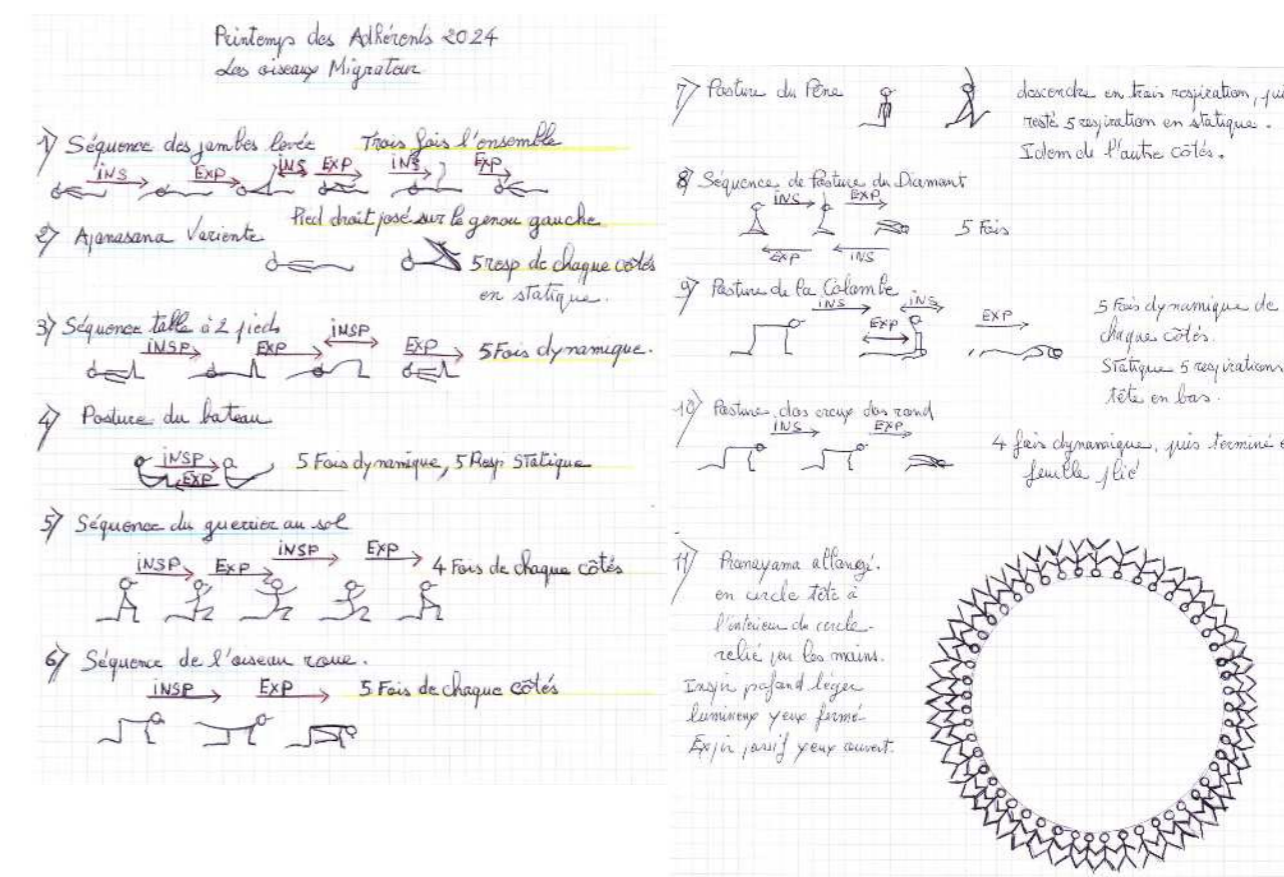 Printemps des Adhérents 2024
Les oiseaux Migrateur
1) Séquence des jambes levée Trois fois l'ensemble
INS EXP INS EXP INS EXP
Pied droit posé sur le genou gauche
2) Apanasana Variente
5 resp de chaque côtés
en statique.
3) Séquence table à 2 pieds
INSP EXP INSP EXP 5 Fois dynamique.
4) Posture du bateau
INSP 5 Fois dynamique, 5 Resp Statique
EXP
5) Séquence du guerrier au sol
INSP EXP INSP EXP 4 Fois de chaque côtés
6) Séquence de l'oiseau roue.
INSP EXP 5 Fois de chaque côtés
7) Posture du descendre en trois respiration, pui
resté 5 respiration en statique.
Idem de l'autre côtés.
8) Séquence de Posture du Diamant
INS EXP
5 Fois
EXP INS
9) Posture de la Colombe
INS INS 5 Fois dynamique de
EXP EXP chaque côtés.
Statique 5 respirations
tête en bas.
10) Posture dos creux dos rond
INS EXP
4 fois dynamique, puis terminé e
feuille plié
11) Pranayama allongé.
en cercle tête à
l'intérieur du cercle.
relié par les mains.
Inspir profond léger
lumineux yeux fermé
Expir passif yeux ouvert.